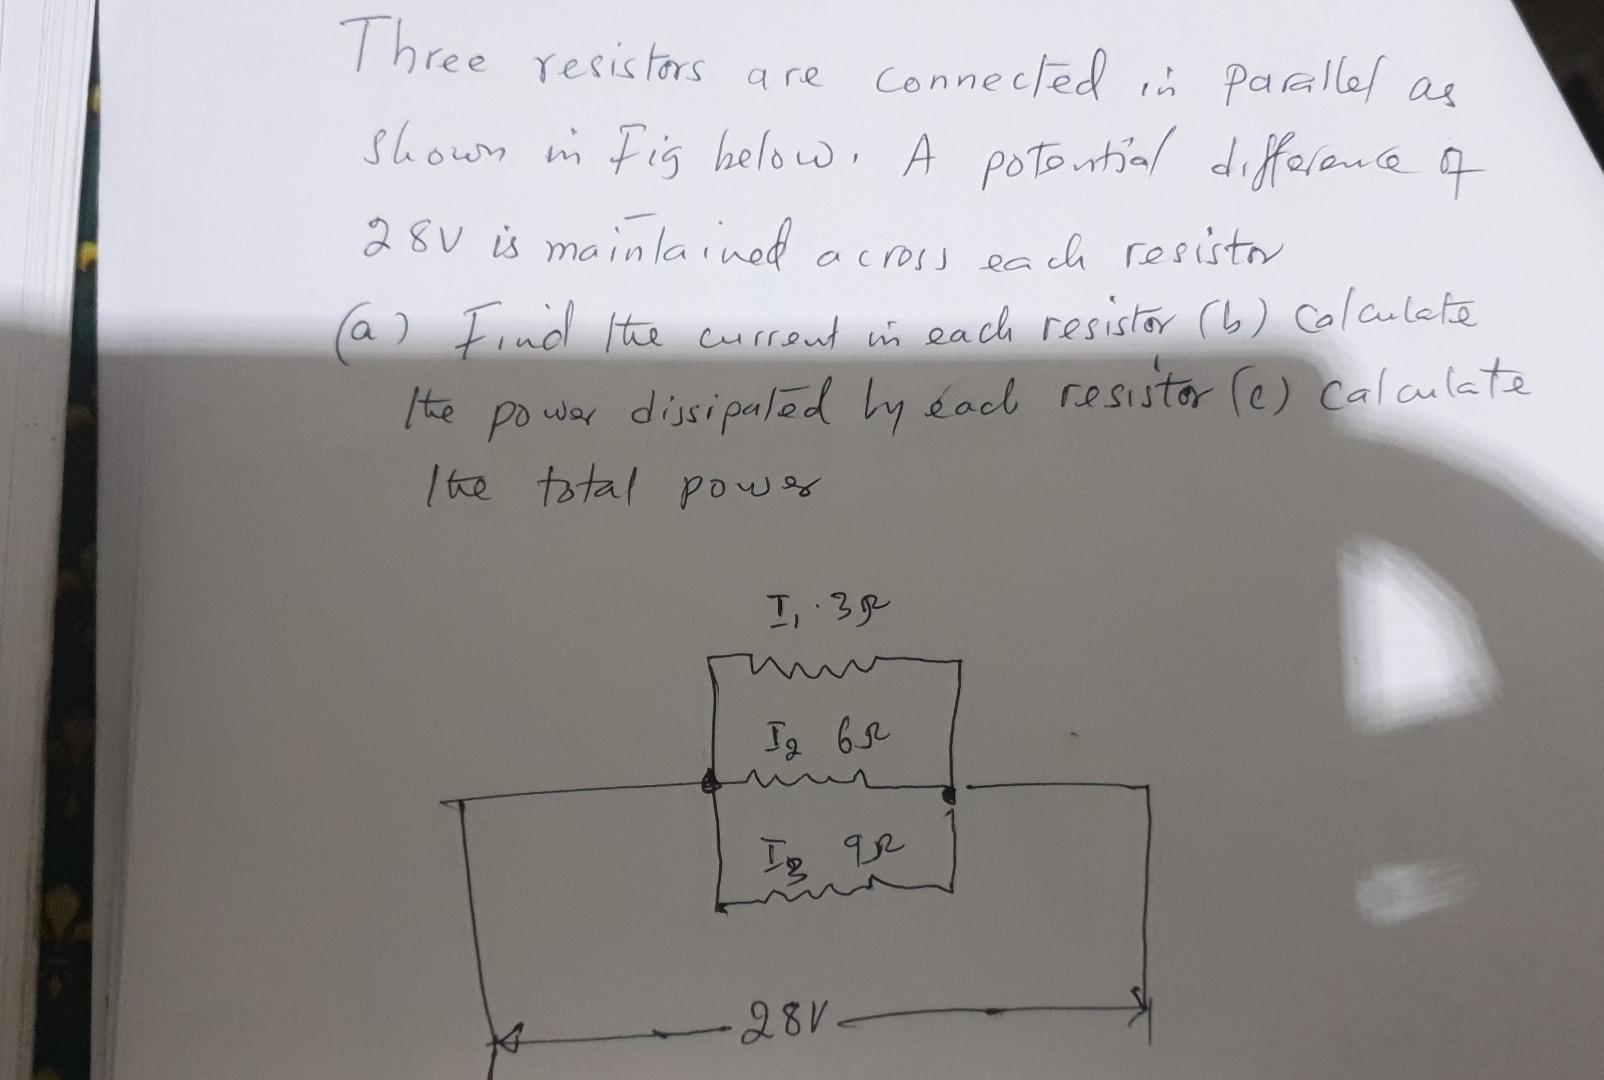 Three resistors are connected in Parallel as
shown in Fig below. A potential difference of
28V is maintained across each resistor
(a) Find the current in each resistor (b) Calculate
the power dissipated by each resistor (c) Calculate
the total power
I₁ 3Ω
I₂ 6Ω
I₃ 9Ω
28V